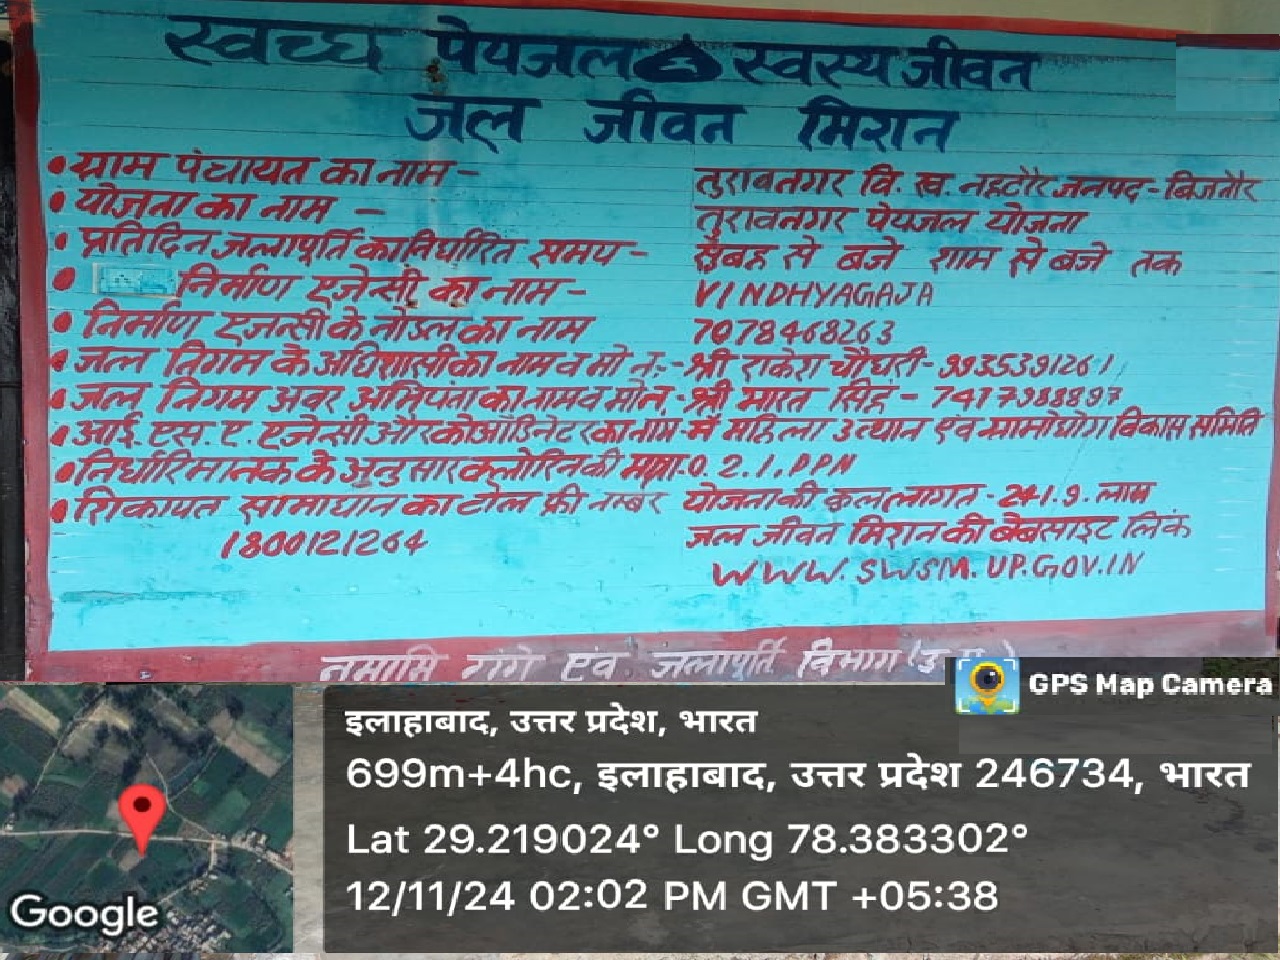 स्वच्छ पेयजल स्वस्थ जीवन
जल जीवन मिशन
ग्राम पंचायत का नाम - तुराबनगर वि. ख. नहटौर जनपद - बिजनौर
योजना का नाम - तुरावनगर पेयजल योजना
प्रतिदिन जलापूर्ति का निर्धारित समय - सुबह से बजे शाम से बजे तक
निर्माण एजेन्सी का नाम - VINDHYAGAJA
निर्माण एजन्सी के नोडल का नाम 7078468263
जल निगम के अधिशासी का नाम व मो नं:- श्री राकेश चौधरी - 9935391261
जल निगम अवर अभियंता का नाम व मो.न. - श्री भारत सिंह - 7417988897
आई. एस. ए. एजेन्सी और कोऑडिनेटर का नाम - में महिला उत्थान एवं ग्रामोद्योग विकास समिति
निर्धारि मानक के अनुसार क्लोरिन की मात्रा. 0.2.1.PPN
शिकायत सामाधान का टोल फ्री नम्बर योजना की कुल लागत - 241.9. लाख
1800121264 जल जीवन मिशन की बैबसाइट लिंक
WWW.SWSM.UP.GOV.IN
नमामि गंगे एवं जलापूर्ति विभाग (उ.प्र.)
GPS Map Camera
इलाहाबाद, उत्तर प्रदेश, भारत
699m+4hc, इलाहाबाद, उत्तर प्रदेश 246734, भारत
Lat 29.219024° Long 78.383302°
12/11/24 02:02 PM GMT +05:38
Google